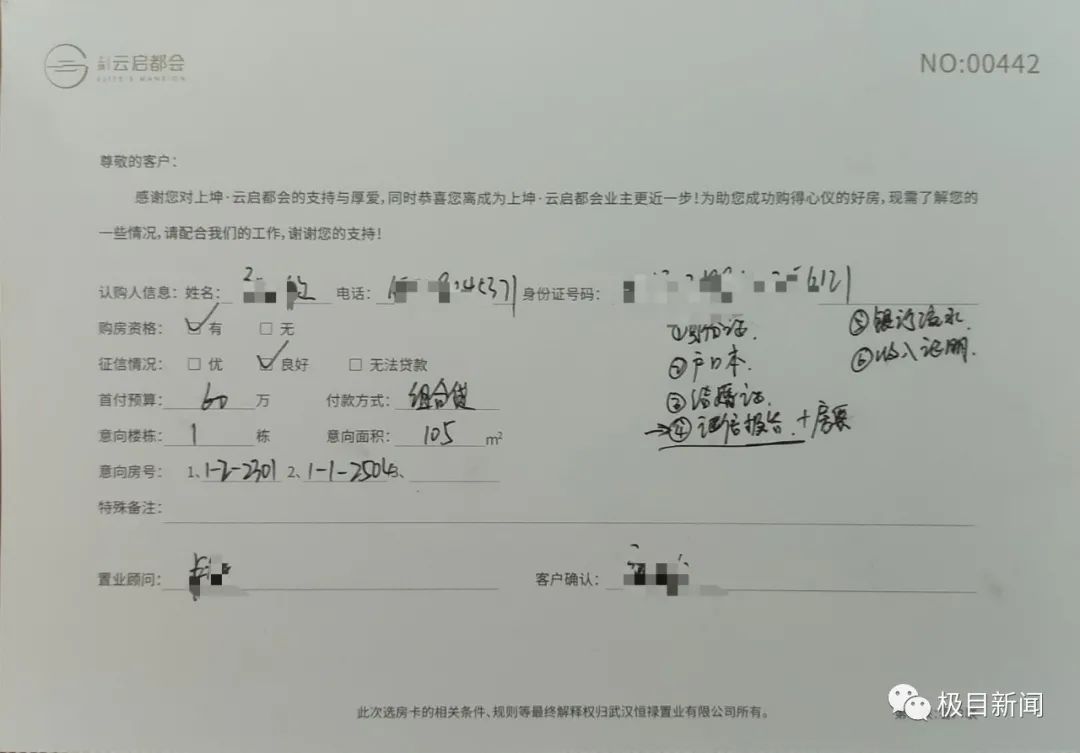 上坤 云启都会
ELITE'S MANSION
NO:00442
尊敬的客户：
感谢您对上坤·云启都会的支持与厚爱，同时恭喜您离成为上坤·云启都会业主更近一步！为助您成功购得心仪的好房，现需了解您的
一些情况，请配合我们的工作，谢谢您的支持！
认购人信息：姓名： 电话： 身份证号码：
购房资格： 有 □ 无
①身份证.
⑤银行流水.
征信情况： □ 优 良好 □ 无法贷款
②户口本.
⑥收入证明.
首付预算： 60 万 付款方式： 组合贷
③结婚证.
意向楼栋： 1 栋 意向面积： 105 m²
→④征信报告.+房票
意向房号： 1、1-2-2301 2、1-1-2504 3、
特殊备注：
置业顾问： 客户确认：
此次选房卡的相关条件、规则等最终解释权归武汉恒禄置业有限公司所有。
极目新闻